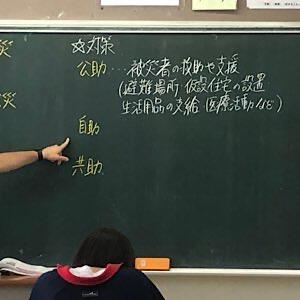 ☆対策
公助…被災者の救助や支援
(避難場所 仮設住宅の設置
生活用品の支給 医療活動など)
自助
共助
災
災